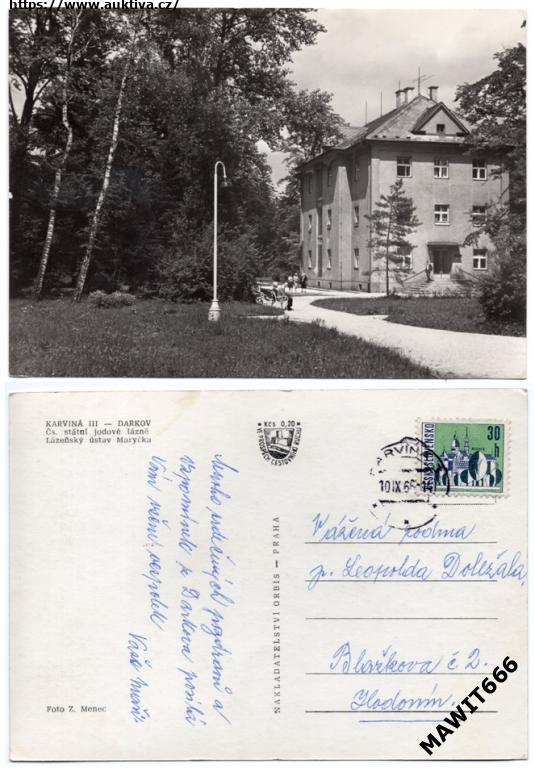 https://www.auktiva.cz/
KARVINÁ III — DARKOV
Čs. státní jodové lázně
Lázeňský ústav Maryčka
Kčs 0,20
VE PROSPĚCH CESTOVNÍHO RUCHU
30 h
ČESKOSLOVENSKO
KARVINÁ
10.IX.66
Mnoho srdečných pozdravů a
vzpomínek z Darkova posílá
Vám
Vaše
NAKLADATELSTVÍ ORBIS — PRAHA
Vážená rodina
p. Leopolda Doležala,
Blažkova č 2.
Hodonín.
Foto Z. Menec
MAWIT666